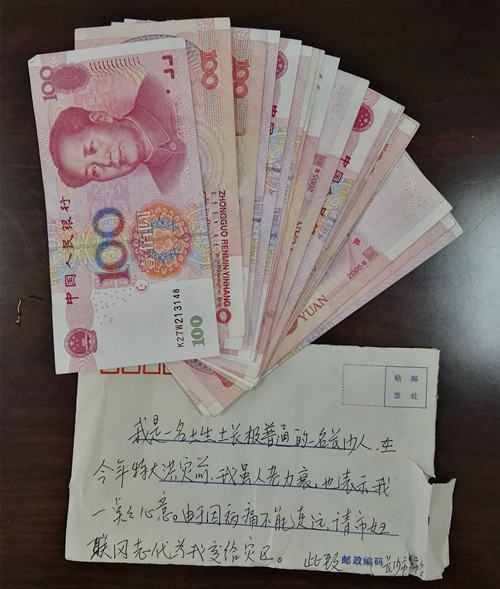 100
中国人民银行
100
壹佰圆
K27W213148
100
100
ZHONGGUO RENMIN YINHANG
100
2005年
YUAN
2005年
YUAN
贴 邮
票 处
我是一名土生土长极普通的一名长沙人,在
今年特大洪灾前,我虽人老力衰,也表示我
一点心意。由于因病痛不能走远,请市妇
联同志代为我交给灾区。 此致 邮政编码